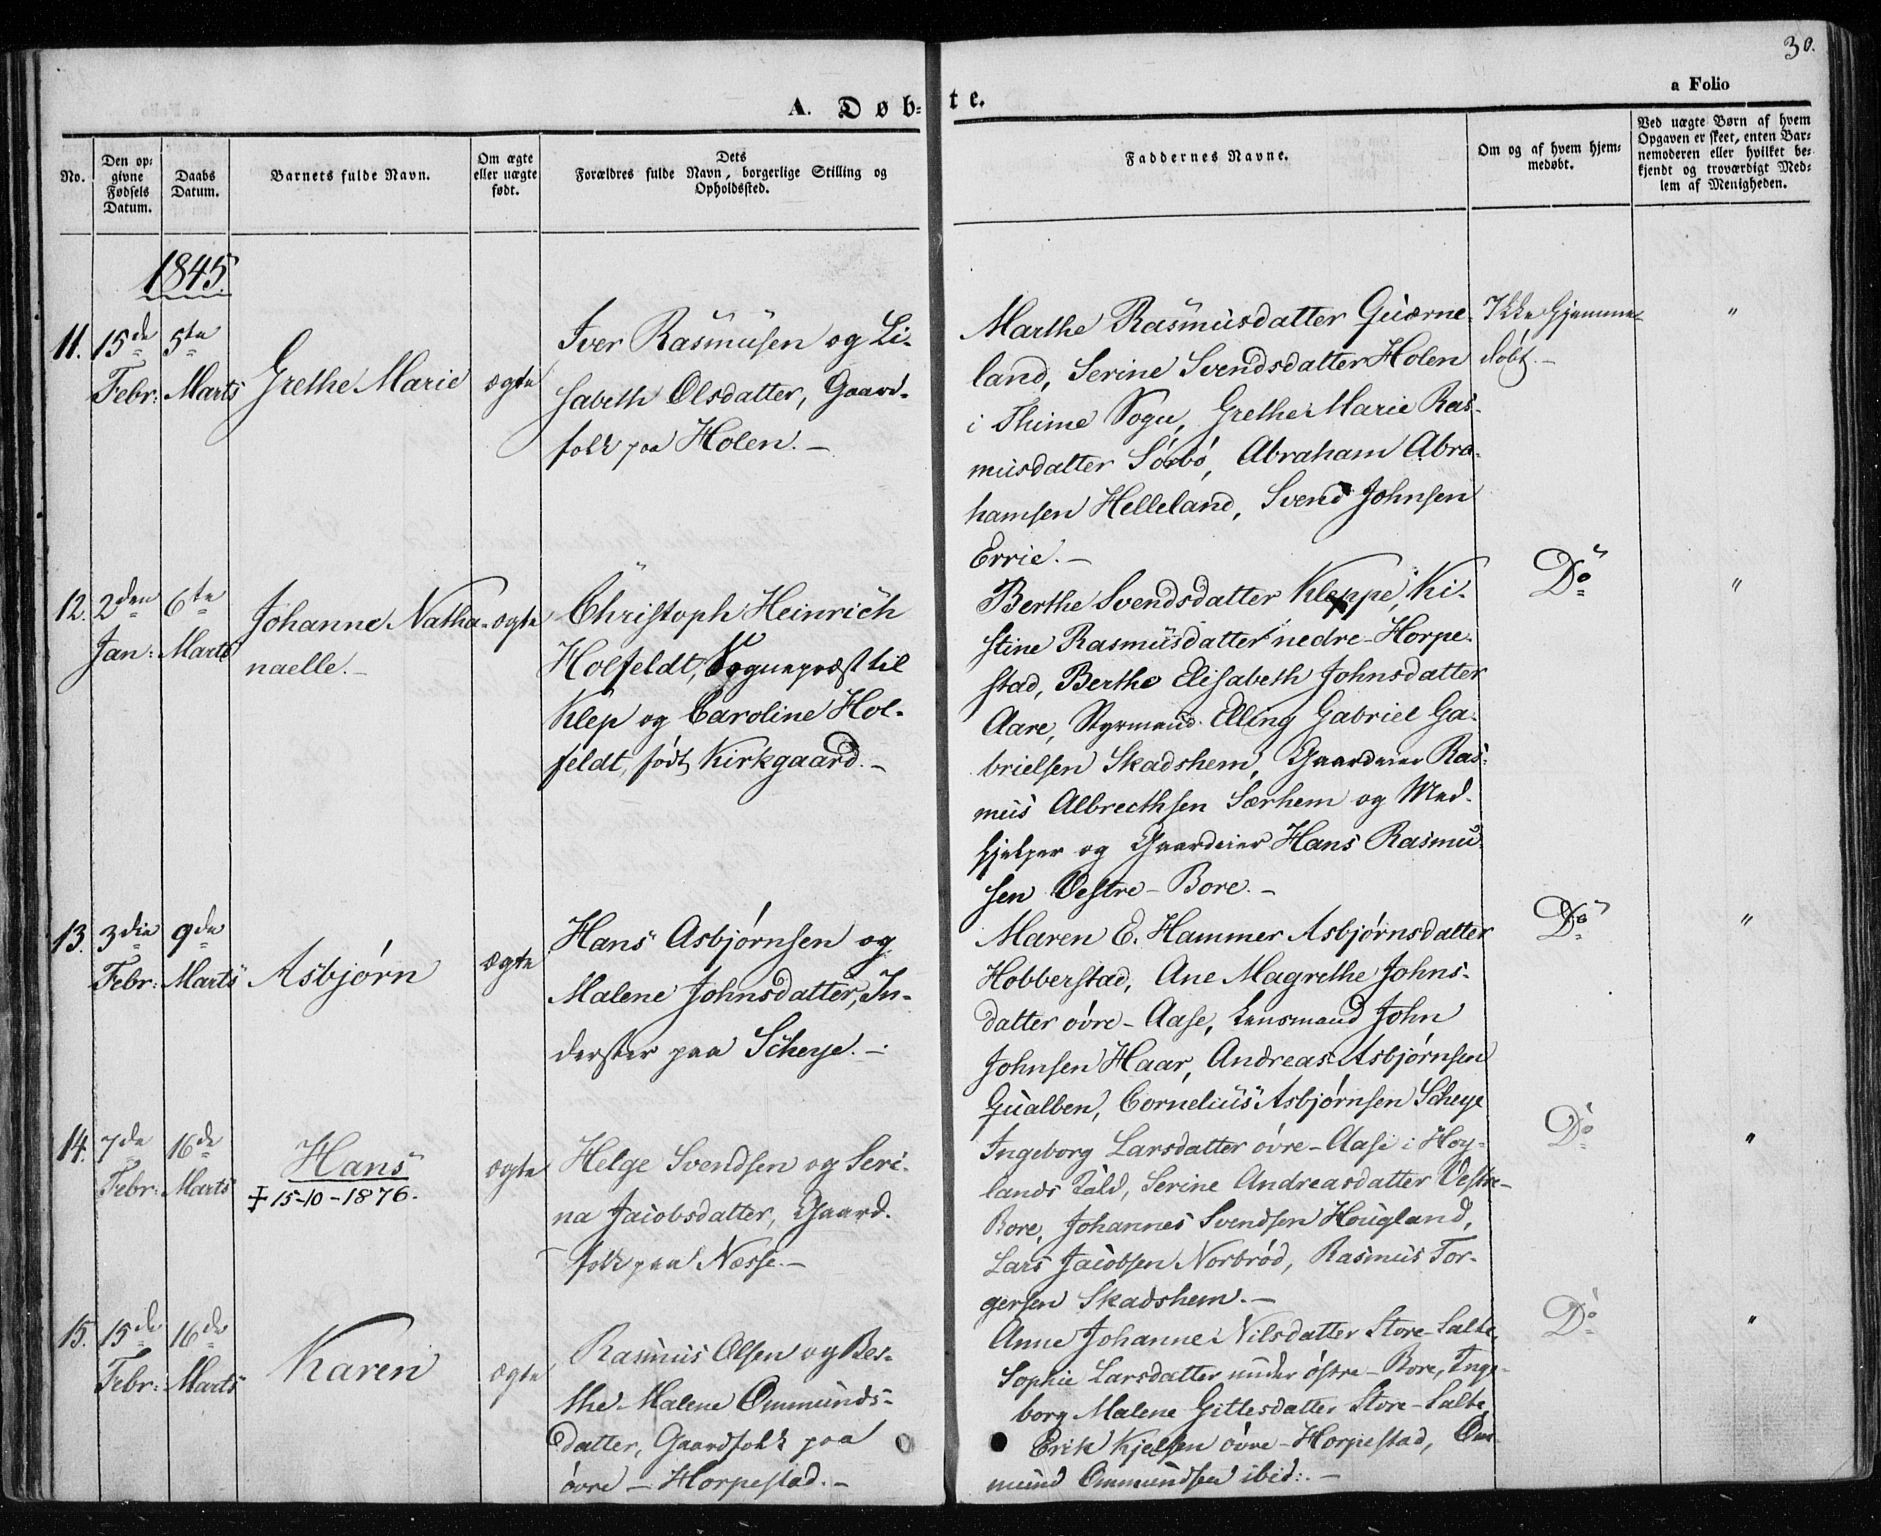 30.
A. Døb=
te.
a Folio
No.
Den op=
givne
Fødsels
Datum.
Daabs
Datum.
Barnets fulde Navn.
Om ægte
eller uægte
født.
Dets
Forældres fulde Navn, borgerlige Stilling og
Opholdssted.
Faddernes Navne.
Om og af hvem hjem=
medøbt.
Ved uægte Børn af hvem
Opgaven er skeet, enten Bar=
nemoderen eller hvilket be=
kjendt og troværdigt Med=
lem af Menigheden.
1845.
11.
15de
Febr:
5te
Marts
Grethe Marie
ægte
Iver Rasmusen og Li-
sabeth Olsdatter, Gaard-
folk paa Holen.-
Marthe Rasmusdatter Quærne-
land, Serine Svendsdatter Holen
i Thime Sogn, Grethe Marie Ras-
musdatter Sørbø, Abraham Abra-
hamsen Helleland, Svend Johnsen
Errie.-
Ikke Hjemme-
døbt.-
"
12.
2den
Jan:
6te
Marts
Johanne Natha-
naelle.-
ægte
Christoph Heinrich
Holfeldt, Sognepræst til
Klep og Caroline Hol-
feldt, født Kirkgaard.-
Berthe Svendsdatter Kleppe, Ki-
stine Rasmusdatter nedre-Horpe-
stad, Berthe Elisabeth Johnsdatter
Aare, Styrmand Elling Gabriel Ga-
brielsen Skadshem, Gaardeier Ras-
mus Albrecthsen Særhem og Med-
hjelper og Gaardeier Hans Rasmu-
sen Vestre-Bore.-
Do
"
13.
3die
Febr:
9de
Marts
Asbjørn
ægte
Hans Asbjørnsen og
Malene Johnsdatter, In-
derster paa Scheye.-
Maren E. Hammer Asbjørnsdatter
Hobberstad, Ane Magrethe Johns-
datter øvre-Aase, Lensmand John
Johnsen Haar, Andreas Asbjørnsen
Qualben, Cornelius Asbjørnsen Scheye
Do
"
14.
7de
Febr:
16de
Marts
Hans
‡ 15-10-1876.
ægte
Helge Svendsen og Seri-
na Jacobsdatter, Gaard-
folk paa Næsse.-
Ingeborg Larsdatter øvre-Aase i Høy-
lands Præstegjeld, Serine Andreasdatter Vestre-
Bore, Johannes Svendsen Hougland,
Lars Jacobsen Norbrød, Rasmus Tor-
gersen Skadshem.-
Do
"
15.
15de
Febr:
16de
Marts
Karen
ægte
Rasmus Olsen og Ber-
the Malene Ommunds-
datter, Gaardfolk paa
øvre-Horpestad.-
Anne Johanne Nilsdatter Store-Salte,
Sophie Larsdatter under østre-Bore, Inge-
borg Malene Gittesdatter Store-Salte,
Erik Kjelsen øvre-Horpestad, Om-
mund Ommundsen ibid:.-
Do
"